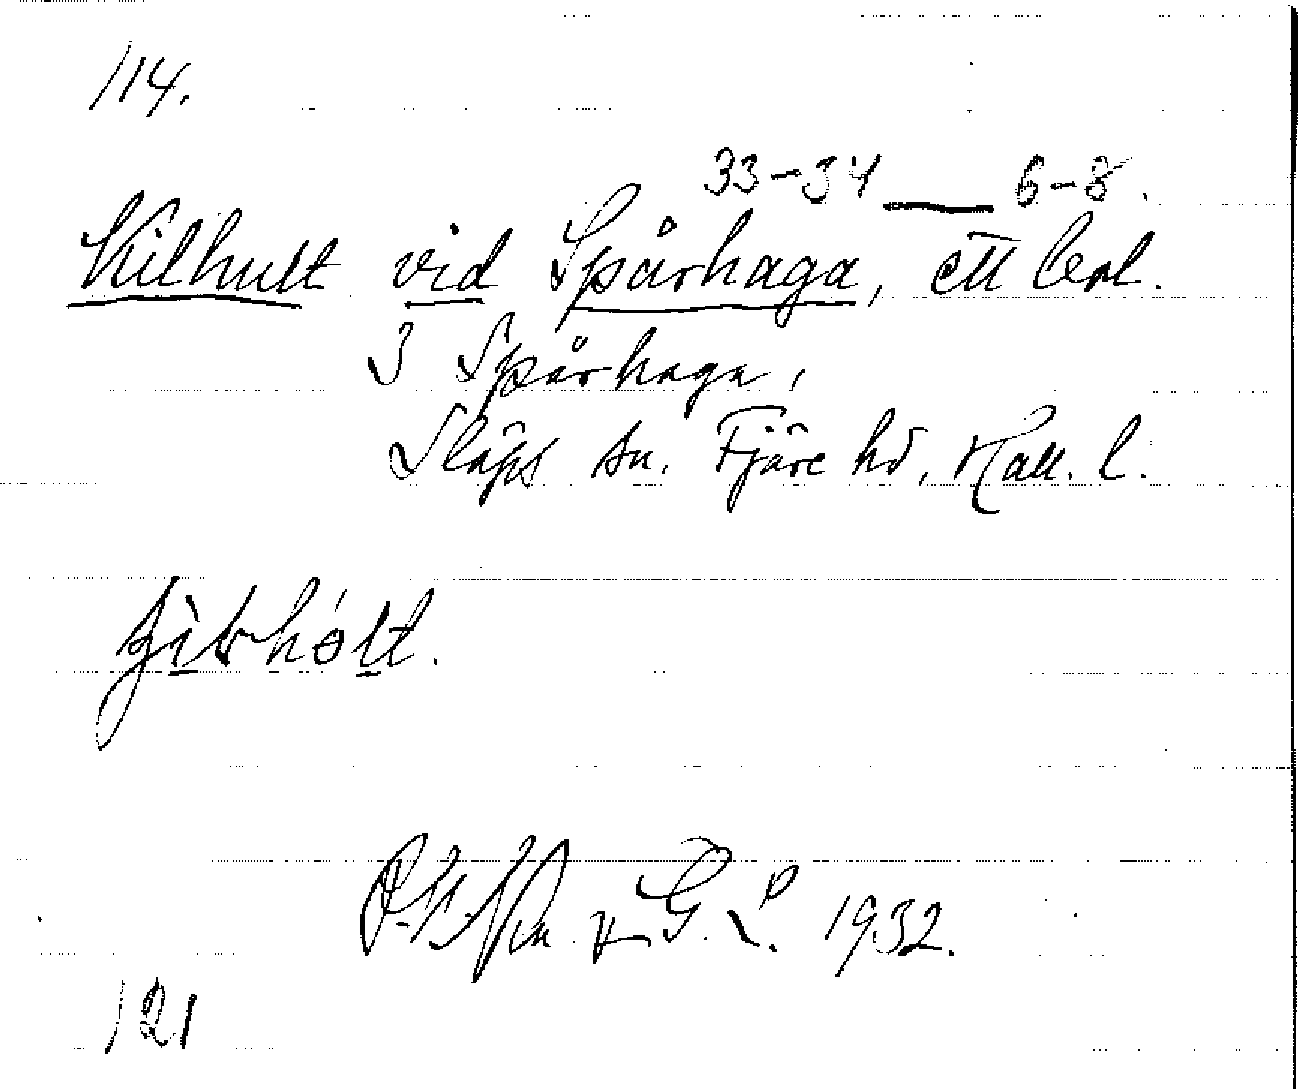 114.
33-34 — 6-8.
Kilhult vid Spårhaga, ett
3 Spårhaga,
Släps sn. Fjäre hd, Hall. l.
G. L. 1932.
121